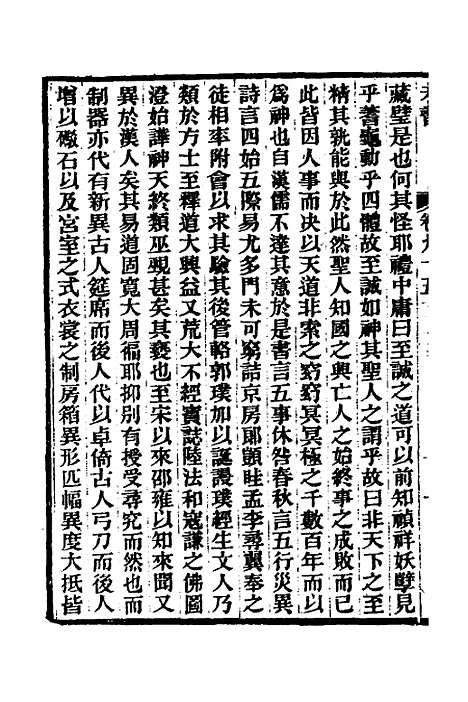 藏璧是也何其怪耶禮中庸曰至誠之道可以前知禎祥妖孽見
乎蓍龜動乎四體故至誠如神其聖人之謂乎故曰非天下之至
精其孰能與於此然聖人知國之興亡人之始終事之成敗而已
此皆因人事而决以天道非索之窈窈冥冥極之千數百年而以
爲神也自漢儒不達其意於是書言五事休咎春秋言五行災異
詩言四始五際易尤多門未可窮詰京房郞顗眭孟李尋翼奉之
徒相率附會以求其驗其後管輅郭璞加以誕謾璞經生文人乃
類於方士至釋道大興益又荒大不經寳誌陸法和寇謙之佛圖
澄始譁神天終類巫覡甚矣其褻也至宋以來邵雍以知來聞又
異於漢人矣其易道固寬大周褔耶抑別有授受尋究而然也而
制器亦代有新異古人筵席而後人代以卓倚古人弓刀而後人
增以礮石以及宮室之式衣裳之制房箱異形匹幅異度大抵皆